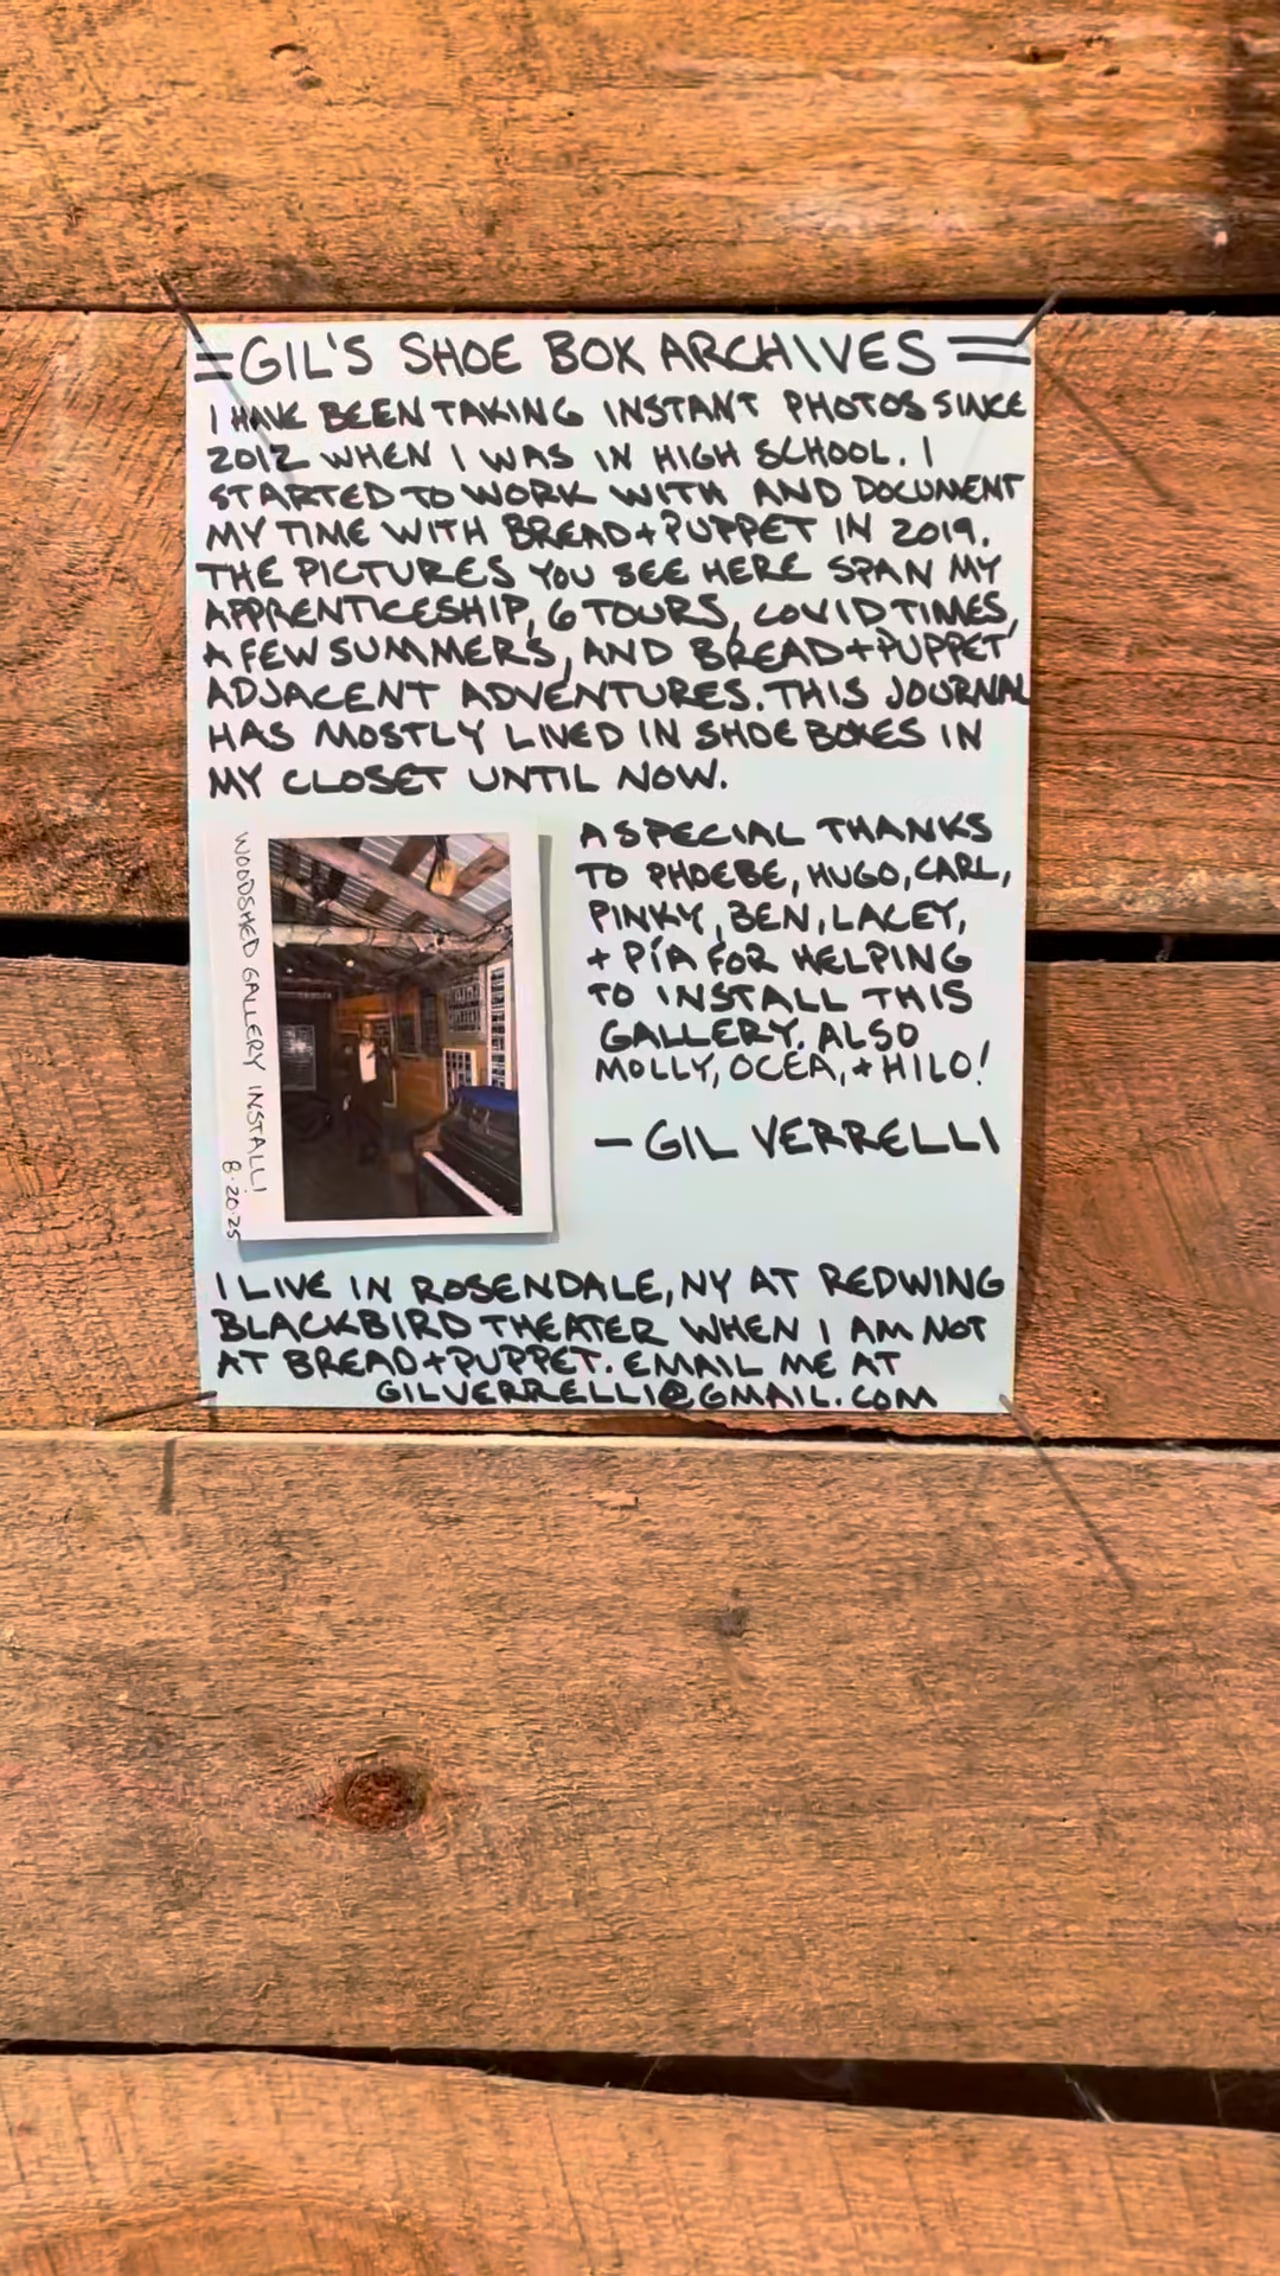 =GIL'S SHOE BOX ARCHIVES=
I HAVE BEEN TAKING INSTANT PHOTOS SINCE
2012 WHEN I WAS IN HIGH SCHOOL. I
STARTED TO WORK WITH AND DOCUMENT
MY TIME WITH BREAD+PUPPET IN 2019.
THE PICTURES YOU SEE HERE SPAN MY
APPRENTICESHIP, 6 TOURS, COVID TIMES,
A FEW SUMMERS, AND BREAD+PUPPET
ADJACENT ADVENTURES. THIS JOURNAL
HAS MOSTLY LIVED IN SHOE BOXES IN
MY CLOSET UNTIL NOW.
WOODSHED GALLERY INSTALL!
8.20.25
A SPECIAL THANKS
TO PHOEBE, HUGO, CARL,
PINKY, BEN, LACEY,
+ PÍA FOR HELPING
TO INSTALL THIS
GALLERY. ALSO
MOLLY, OCEA, + HILO!
— GIL VERRELLI
I LIVE IN ROSENDALE, NY AT REDWING
BLACKBIRD THEATER WHEN I AM NOT
AT BREAD+PUPPET. EMAIL ME AT
GILVERRELLI@GMAIL.COM